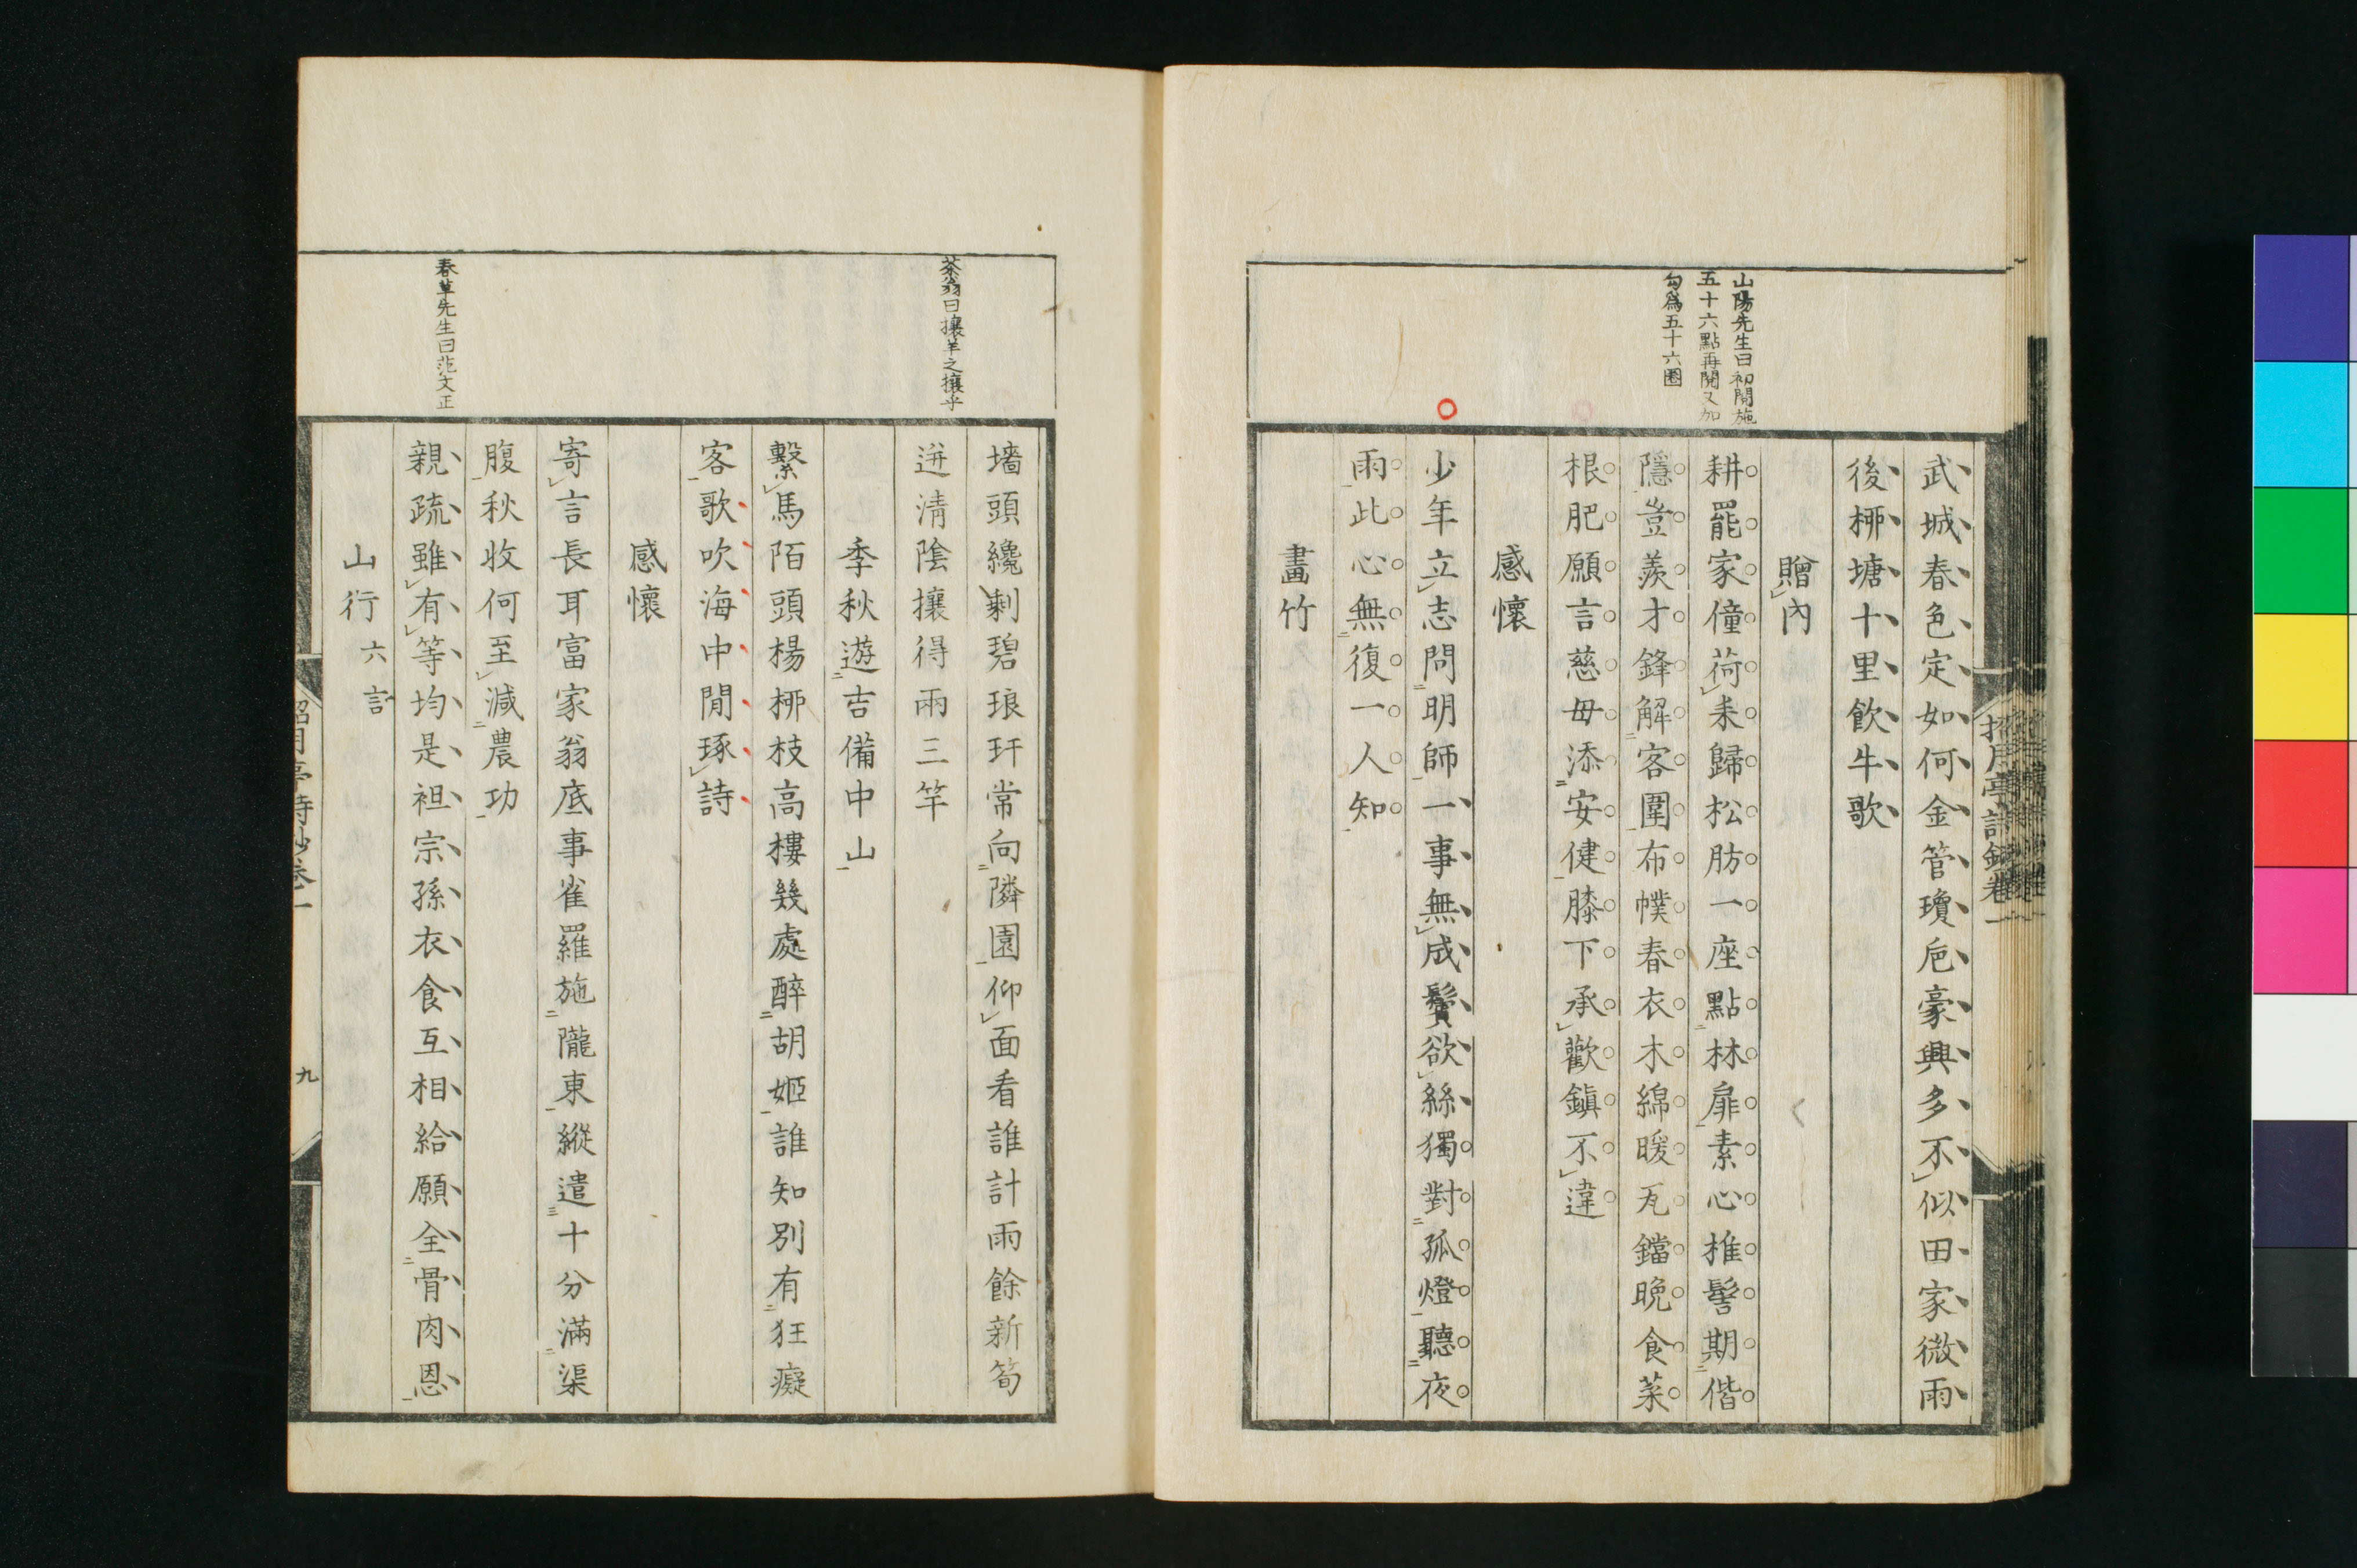 山陽先生曰初閱施
五十六點再閱又加
勾爲五十六圈
武城春色定如何金管瓊巵豪興多不似田家微雨
後柳塘十里飲牛歌
贈內
耕罷家僮荷耒歸松肪一座點林扉素心推髻期偕
隱豈羨才鋒解客圍布幞春衣木綿暖瓦鐺晩食菜
根肥願言慈母添安健膝下承歡鎭不違
感懷
少年立志問明師一事無成鬢欲絲獨對孤燈聽夜
雨此心無復一人知
畫竹
招月亭詩鈔卷一
茶翁曰攘羊之攘乎
春草先生曰范文正
墻頭纔剩碧琅玕常向隣園仰面看誰計雨餘新筍
迸淸陰攘得兩三竿
季秋遊吉備中山
繫馬陌頭楊柳枝高樓幾處醉胡姬誰知別有狂癡
客歌吹海中閒琢詩
感懷
寄言長耳富家翁底事雀羅施隴東縱遣十分滿渠
腹秋收何至減農功
親疏雖有等均是袒宗孫衣食互相給願全骨肉恩
山行六言
招月亭詩鈔卷一
九